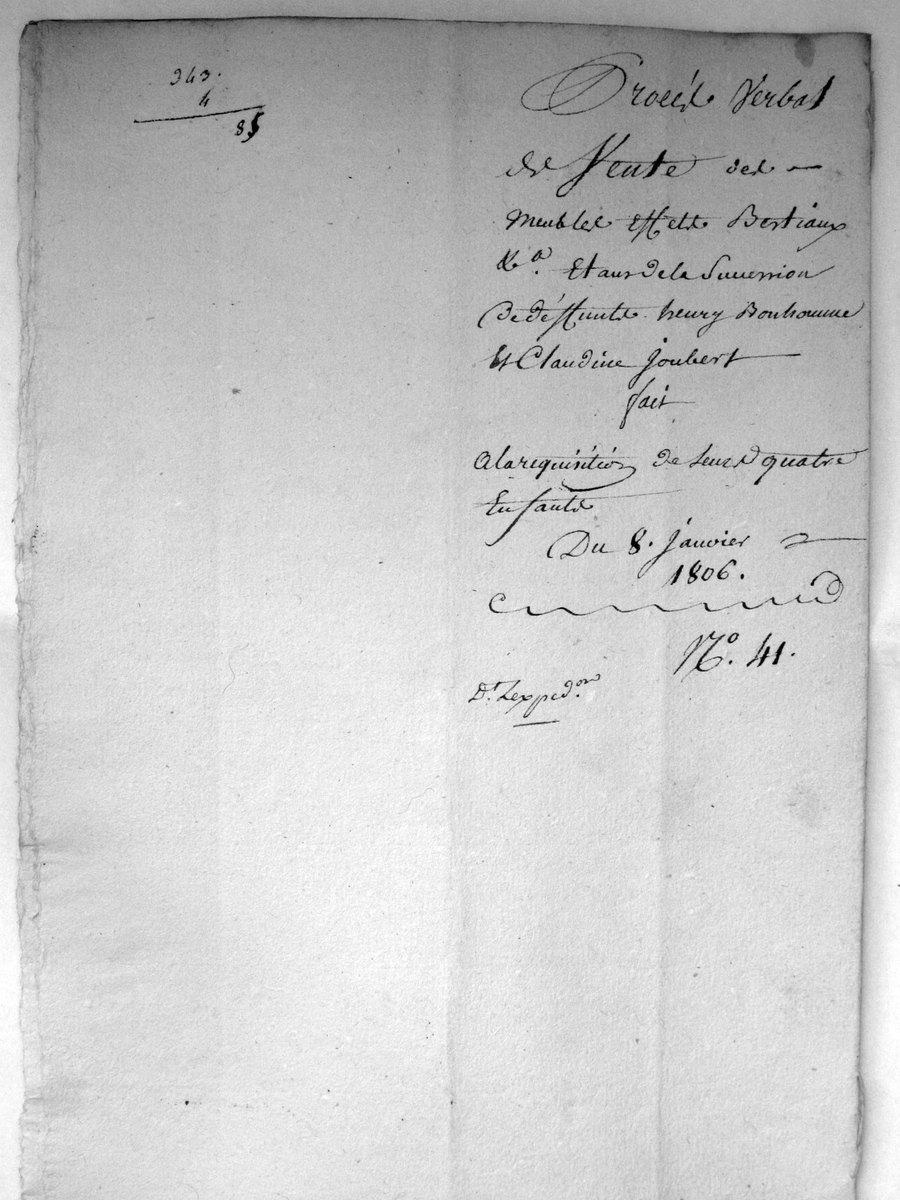 343.
4
85
Procès Verbal
de Vente des
Meubles effets Bestiaux
&a. Etans de la Succession
de défunts henry Bonhomme
Et Claudine Joubert
fait
a la requisition de leurs quatre
Enfants
Du 8. Janvier
1806.
No. 41.
Dt. L'expedon.